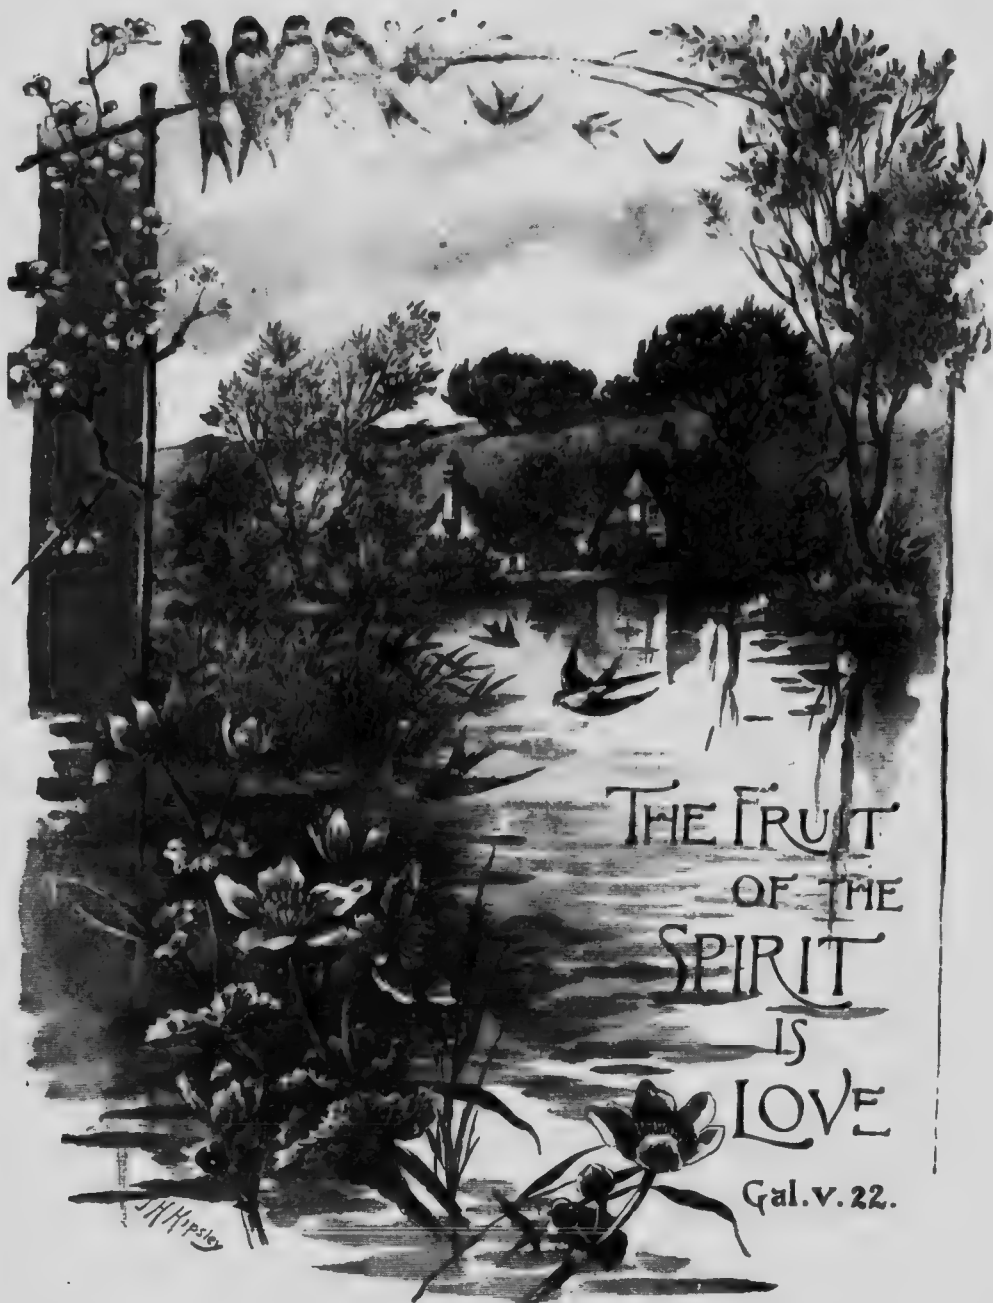 THE FRUIT
OF THE
SPIRIT
IS
LOVE
Gal. v. 22.
J H Hipsley